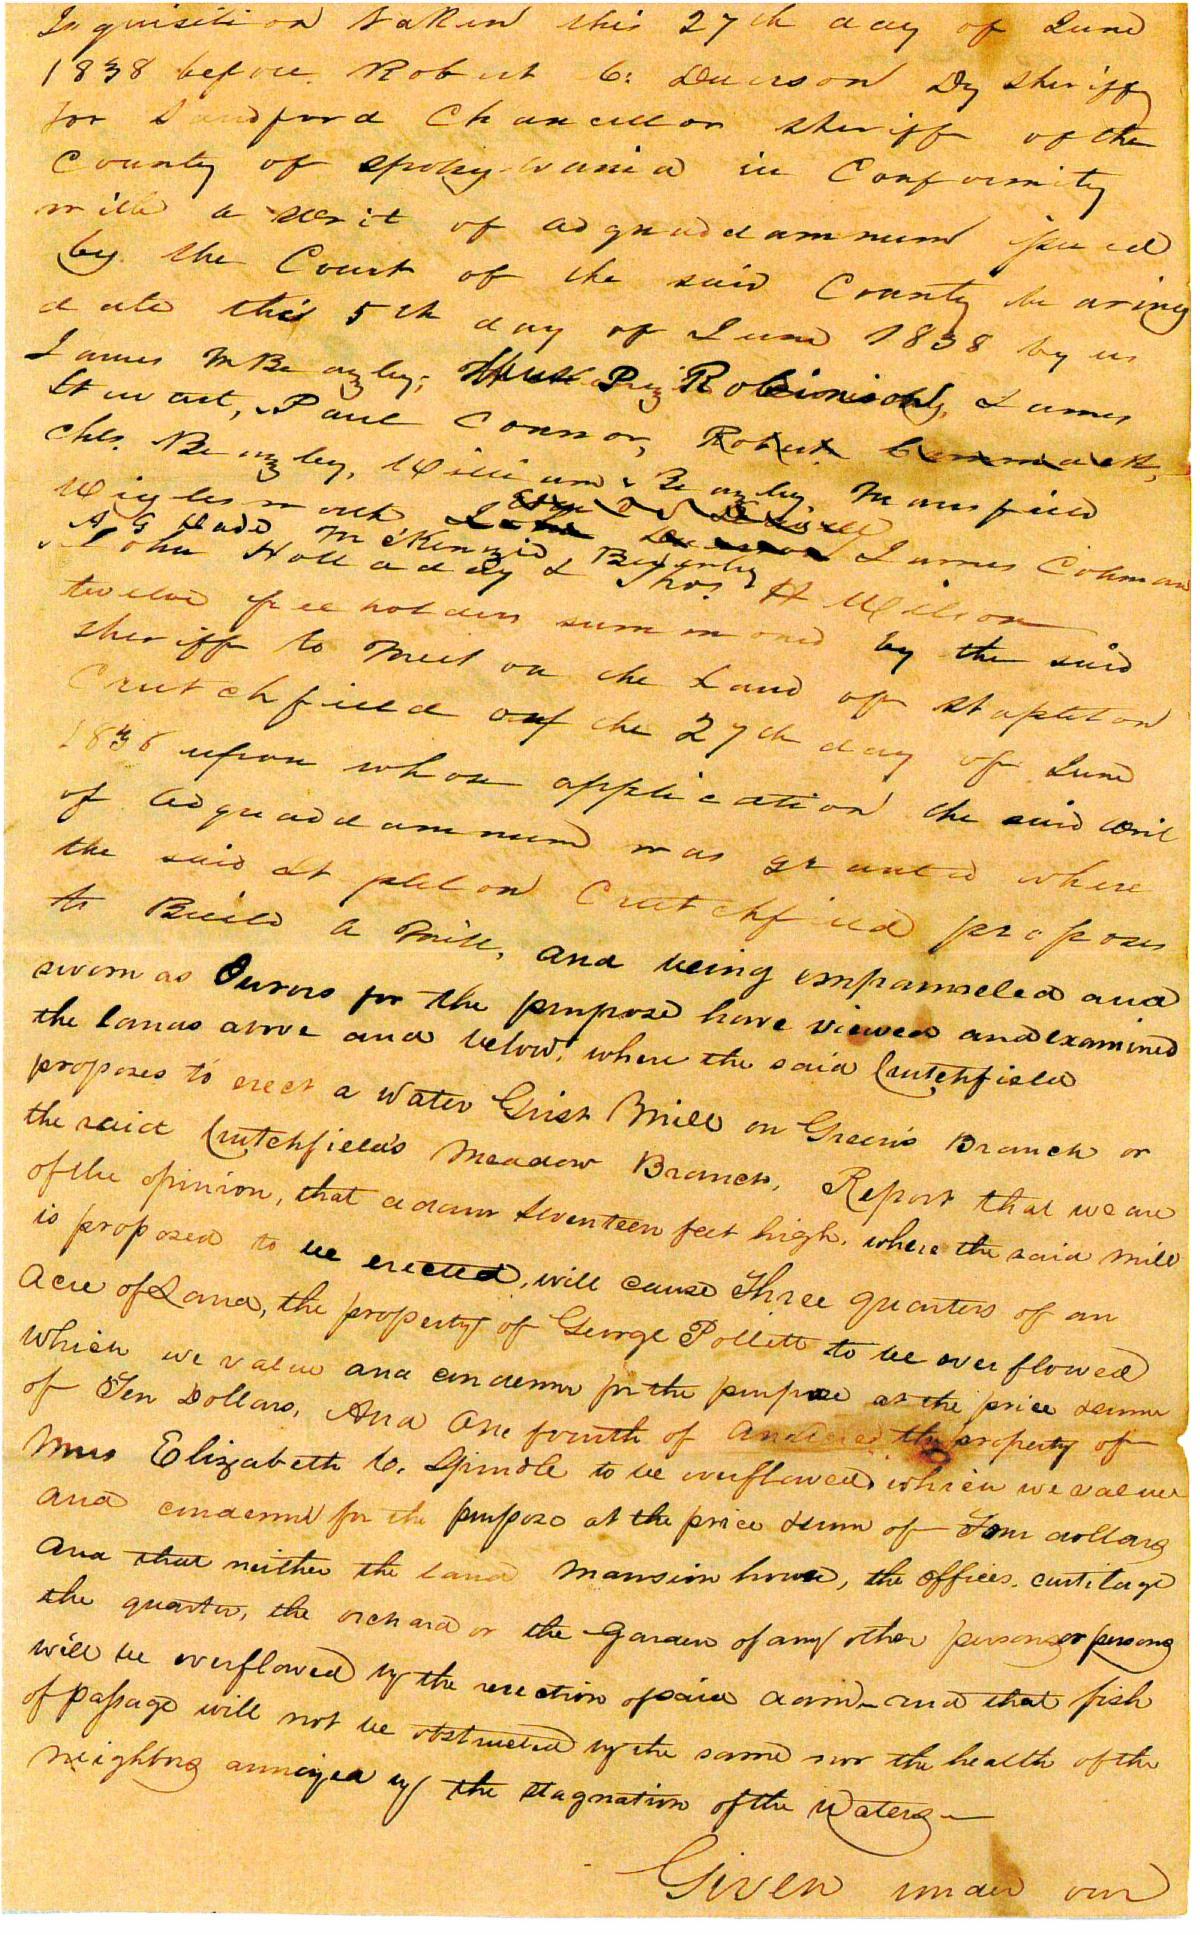 Inquisition taken this 27th day of June
1838 before Robert C: Duerson Dy sheriff
for Sandford Chancellor sheriff of the
County of Spotsylvania in Conformity
with a writ of adquaddamnum issued
by the Court of the said County bearing
date this 5th day of June 1838 by us
James M Beazley, Robinson, James
Stewart, Paul Connor, Robert Cammack,
Chls. Beazley, William Beazley Mansfield
Wiglesworth James Coleman
A G Dade McKenzie Beazley
John Holladay & Thos H Wilson
twelve freeholders summoned by the said
sheriff to meet on the Land of Stapleton
Crutchfield on the 27th day of June
1838 upon whose application the said writ
of adquaddamnum was granted where
the said Stapleton Crutchfield proposes
to Build a Mill, and being empanneled and
sworn as Jurors for the purpose have viewed and examined
the lands above and below, where the said Crutchfield
proposes to erect a Water Grist Mill on Green's Branch or
the said Crutchfield's Meadow Branch, Report that we are
of the opinion, that a dam seventeen feet high, where the said mill
is proposed to be erected, will cause Three quarters of an
Acre of Land, the property of George Pollett to be overflowed
which we value and condemn for the purpose at the price sum
of Ten Dollars, And One fourth of an acre the property of
Mrs Elizabeth C. Spindle to be overflowed which we value
and condemn for the purpose at the price sum of Four dollars
And that neither the land Mansion house, the offices, curtilage
the quarter, the orchard or the garden of any other person or persons
will be overflowed by the erection of said dam — and that fish
of passage will not be obstructed by the same nor the health of the
neighbors annoyed by the stagnation of the Waters —
Given under our